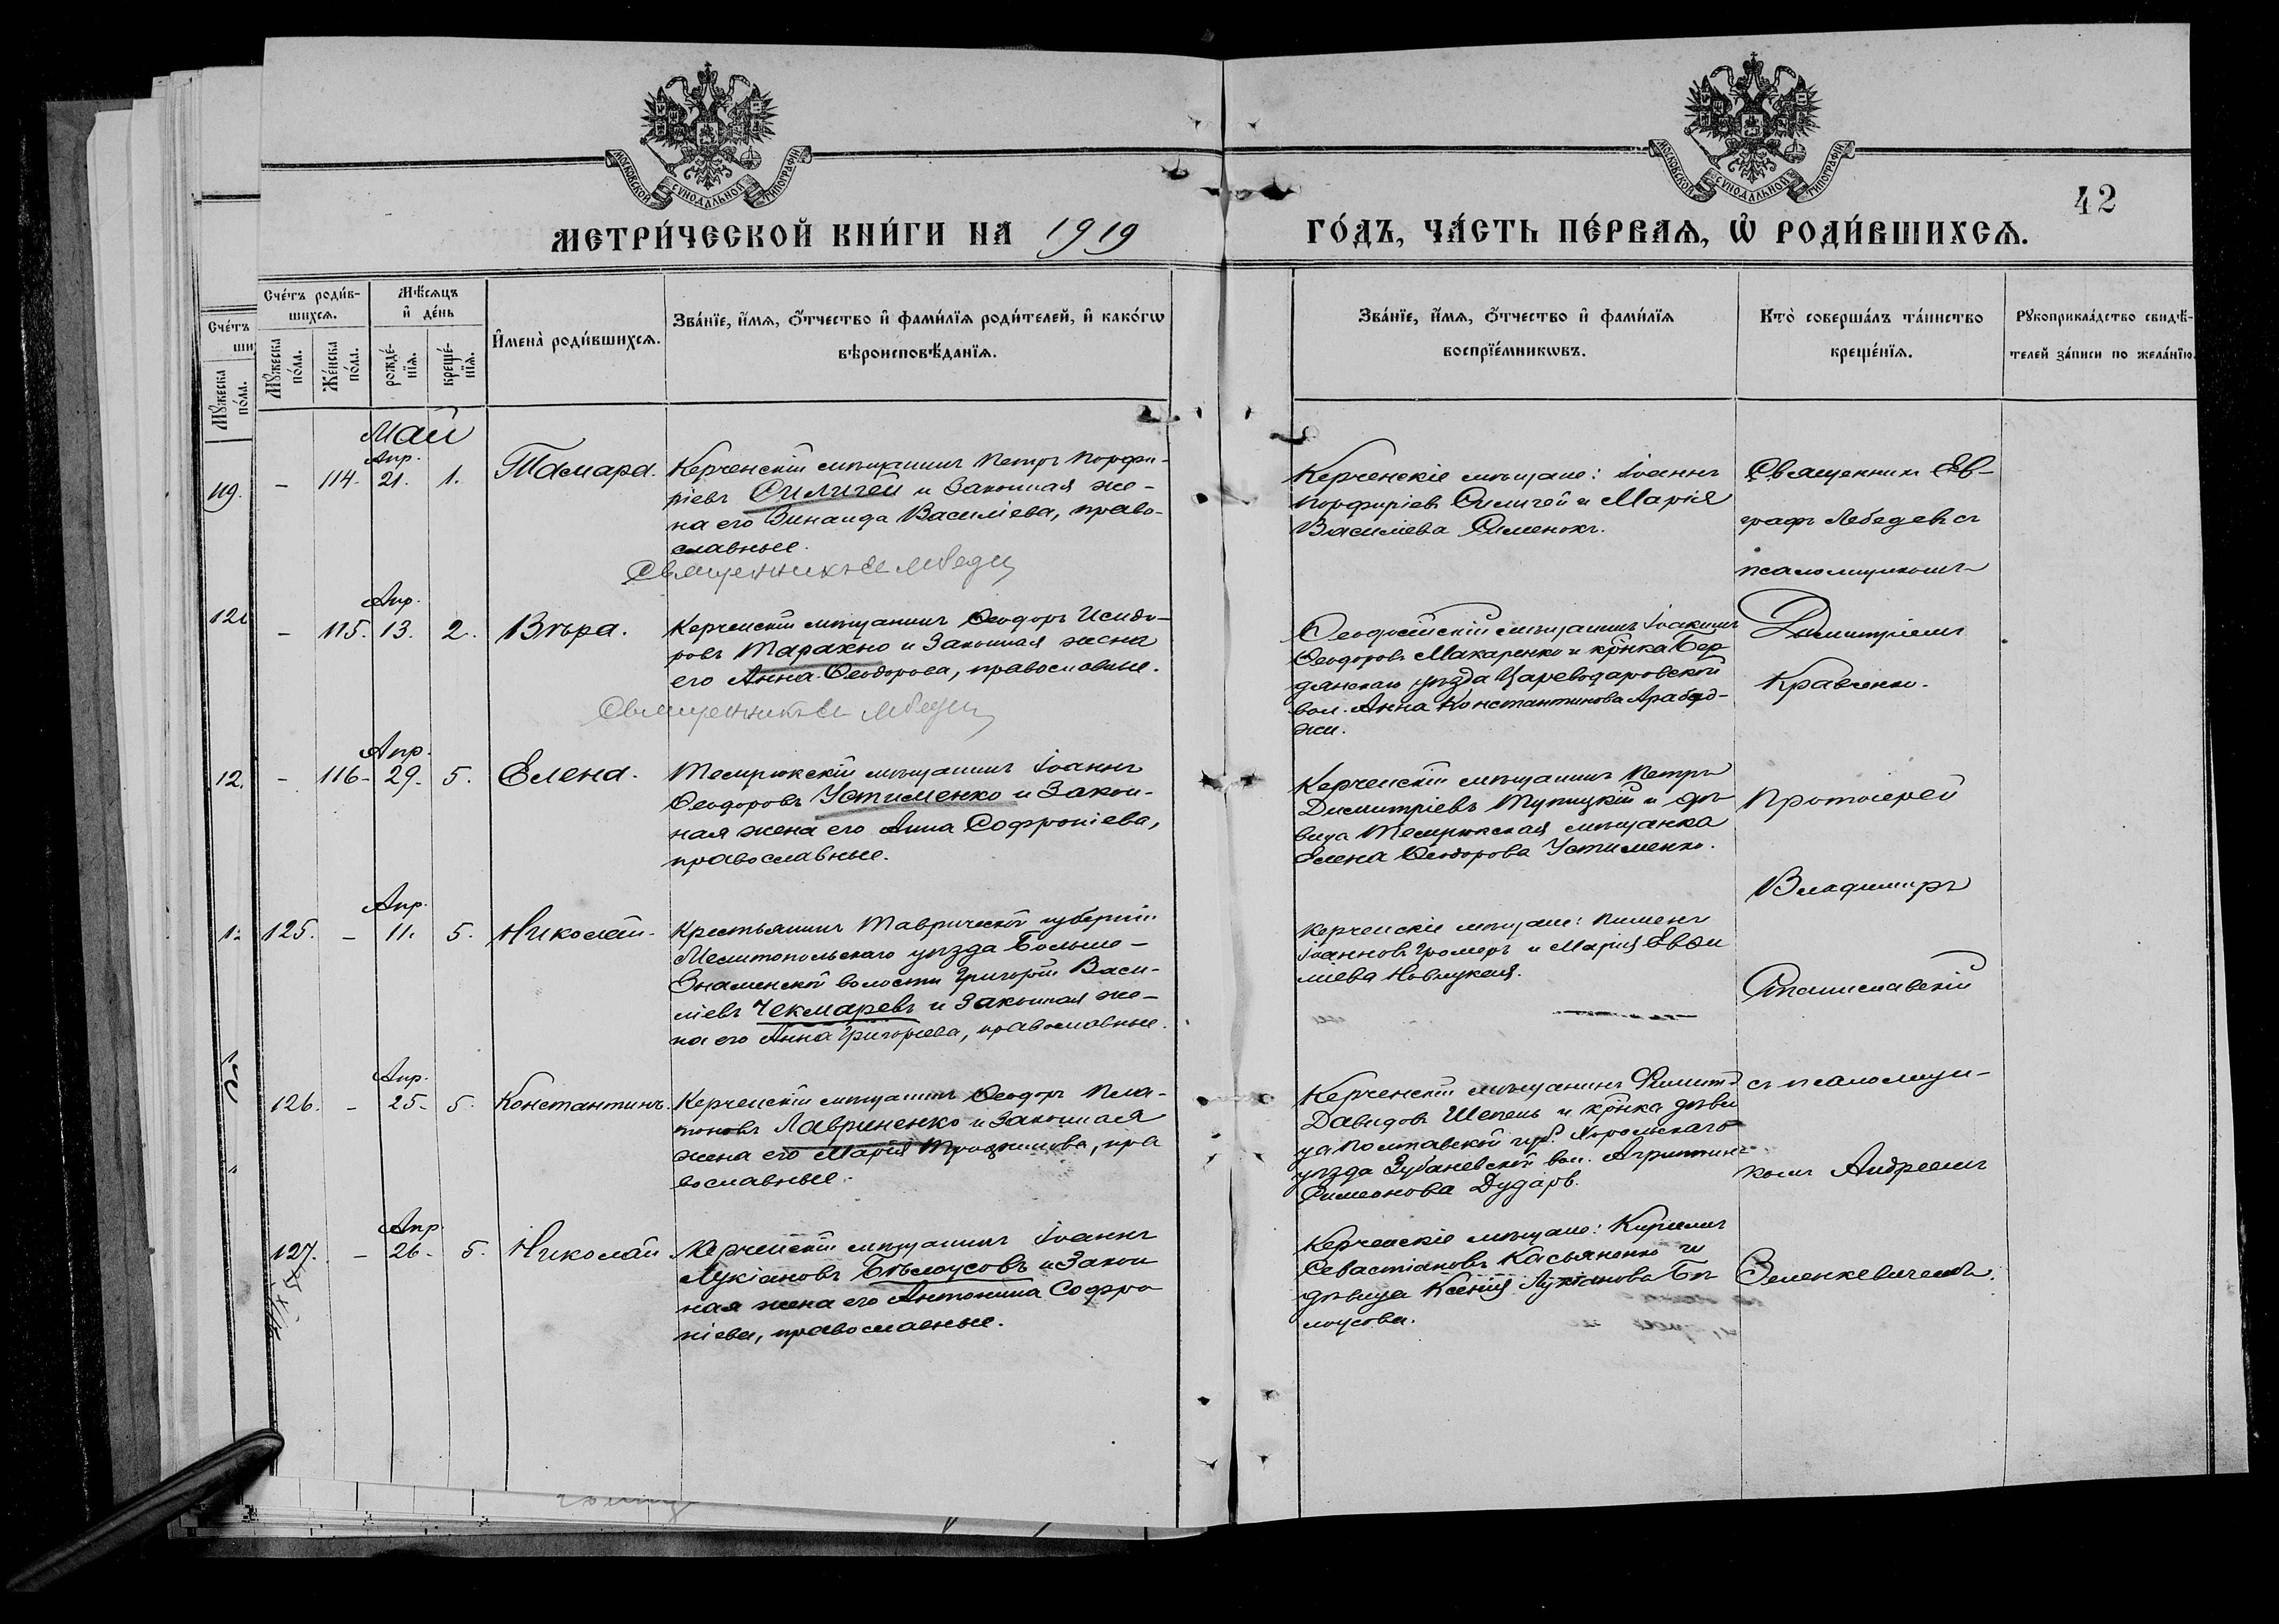 МОСКОВСКОЙ СѴНОДАЛЬНОЙ ТИПОГРАФІИ
МОСКОВСКОЙ СѴНОДАЛЬНОЙ ТИПОГРАФІИ
42
МЕТРИ́ЧЕСКОЙ КНИ́ГИ НА 1919
ГО́ДЪ, ЧА́СТЬ ПЕ́РВАѦ, Ѽ РОДИ́ВШИХСѦ.
Сче́тъ роди́в-
шихсѧ.
Мꙋ́жеска по́ла.
Же́нска по́ла.
Мѣ́сѧцъ
и҆ де́нь
рожде́-нїѧ.
креще́-нїѧ.
И҆мена̀ роди́вшихсѧ.
Зва́нїе, и҆́мѧ, ѻ҆́тчество и҆ фами́лїѧ роди́телей, и҆ како́гѡ
вѣроисповѣ́данїѧ.
Зва́нїе, и҆́мѧ, ѻ҆́тчество и҆ фами́лїѧ
воспрїе́мникѡвъ.
Кто̀ соверша́лъ та́инство
креще́нїѧ.
Рꙋкоприкла́дство свидѣ́-
телей за́писи по жела́нїю.
Сче́тъ
ши
Мꙋ́жеска по́ла.
Май
119.
- 114. Апр. 21. 1. Тамара.
Керченскій мѣщанинъ Петръ Порфи-
ріевъ Силичей и законная же-
на его Зинаида Василіева, право-
славные.
Священникъ Е Лебеде
Керченскіе мѣщане: Іоаннъ
Порфиріевъ Силичей и Марія
Василіева Сименокъ.
Священникъ Ев-
графъ Лебедевъ съ
псаломщикомъ
12
- 115. Апр. 13. 2. Вѣра.
Керченскій мѣщанинъ Ѳеодоръ Исидо-
ровъ Тарахно и законная жена
его Анна Ѳеодорова, православные.
Священникъ Е Лебеде
Ѳеодосійскій мѣщанинъ Іоакимъ
Ѳеодоровъ Макаренко и кр̃нка Бер
дянскаго уѣзда Цареводаровской
вол. Анна Константинова Арабад-
жи.
Димитріемъ
Кравченко.
12.
- 116- Апр. 29. 5. Елена.
Темрюкскій мѣщанинъ Іоаннъ
Ѳеодоровъ Устименко и закон-
ная жена его Анна Софроніева,
православные.
Керченскій мѣщанинъ Петръ
Димитріевъ Тупицкій и дѣ
вица Темрюкская мѣщанка
Елена Ѳеодорова Устименко.
Протоіерей
Владимиръ
125. - Апр. 11. 5. Николай.
Крестьянинъ Таврической губерніи
Мелитопольскаго уѣзда Больше-
Знаменской волости Григорій Васи-
ліевъ Чекмаревъ и законная же-
на его Анна Григорьева, православные.
Керченскіе мѣщане: Пименъ
Іоанновъ и Марія Евѳи
міева
Станиславскій
126. - Апр. 25. 5. Константинъ.
Керченскій мѣщанинъ Ѳеодоръ Пла-
тоновъ Лавриненко и законная
жена его Марія Трофимова, пра
вославные.
Керченскій мѣщанинъ
Давидовъ Шепель и кр̃нка дѣви
ца Полтавской губ. Хорольскаго
уѣзда Зубаневской вол. Агриппина
Симеонова Дударь.
съ псаломщи-
комъ Андреемъ
127. - Апр. 26. 5. Николай
Керченскій мѣщанинъ Іоаннъ
Лукіановъ Бѣлоусовъ и закон
ная жена его Антонина Софро
ніева, православные.
Керченскіе мѣщане: Кириллъ
Севастіановъ Касьяненко и
дѣвица Ксенія Лукіанова Бѣ
лоусова.
Зеленкевичемъ.